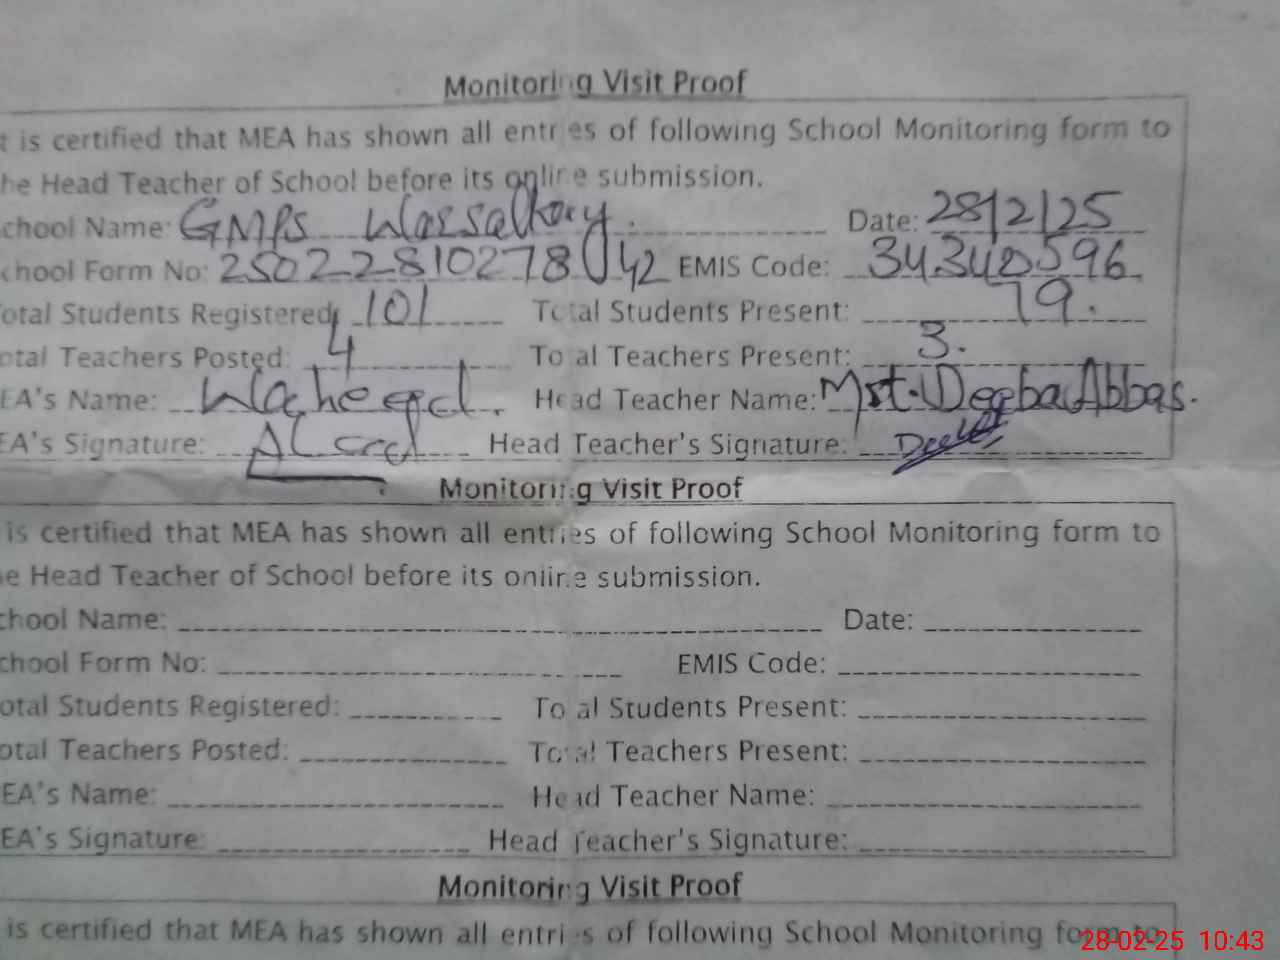 Monitoring Visit Proof
t is certified that MEA has shown all entries of following School Monitoring form to
he Head Teacher of School before its online submission.
chool Name: GMPS Date: 28/2/25
chool Form No: 250228102780042 EMIS Code: 34340596
otal Students Registered: 101 Total Students Present: 79.
otal Teachers Posted: 4 Total Teachers Present: 3.
EA's Name: Waheed. Head Teacher Name: Mst. Deeba Abbas.
EA's Signature: Head Teacher's Signature:
Monitoring Visit Proof
is certified that MEA has shown all entries of following School Monitoring form to
e Head Teacher of School before its online submission.
chool Name: Date:
chool Form No: EMIS Code:
otal Students Registered: Total Students Present:
otal Teachers Posted: Total Teachers Present:
EA's Name: Head Teacher Name:
EA's Signature: Head Teacher's Signature:
Monitoring Visit Proof
is certified that MEA has shown all entries of following School Monitoring form to
28-02-25 10:43